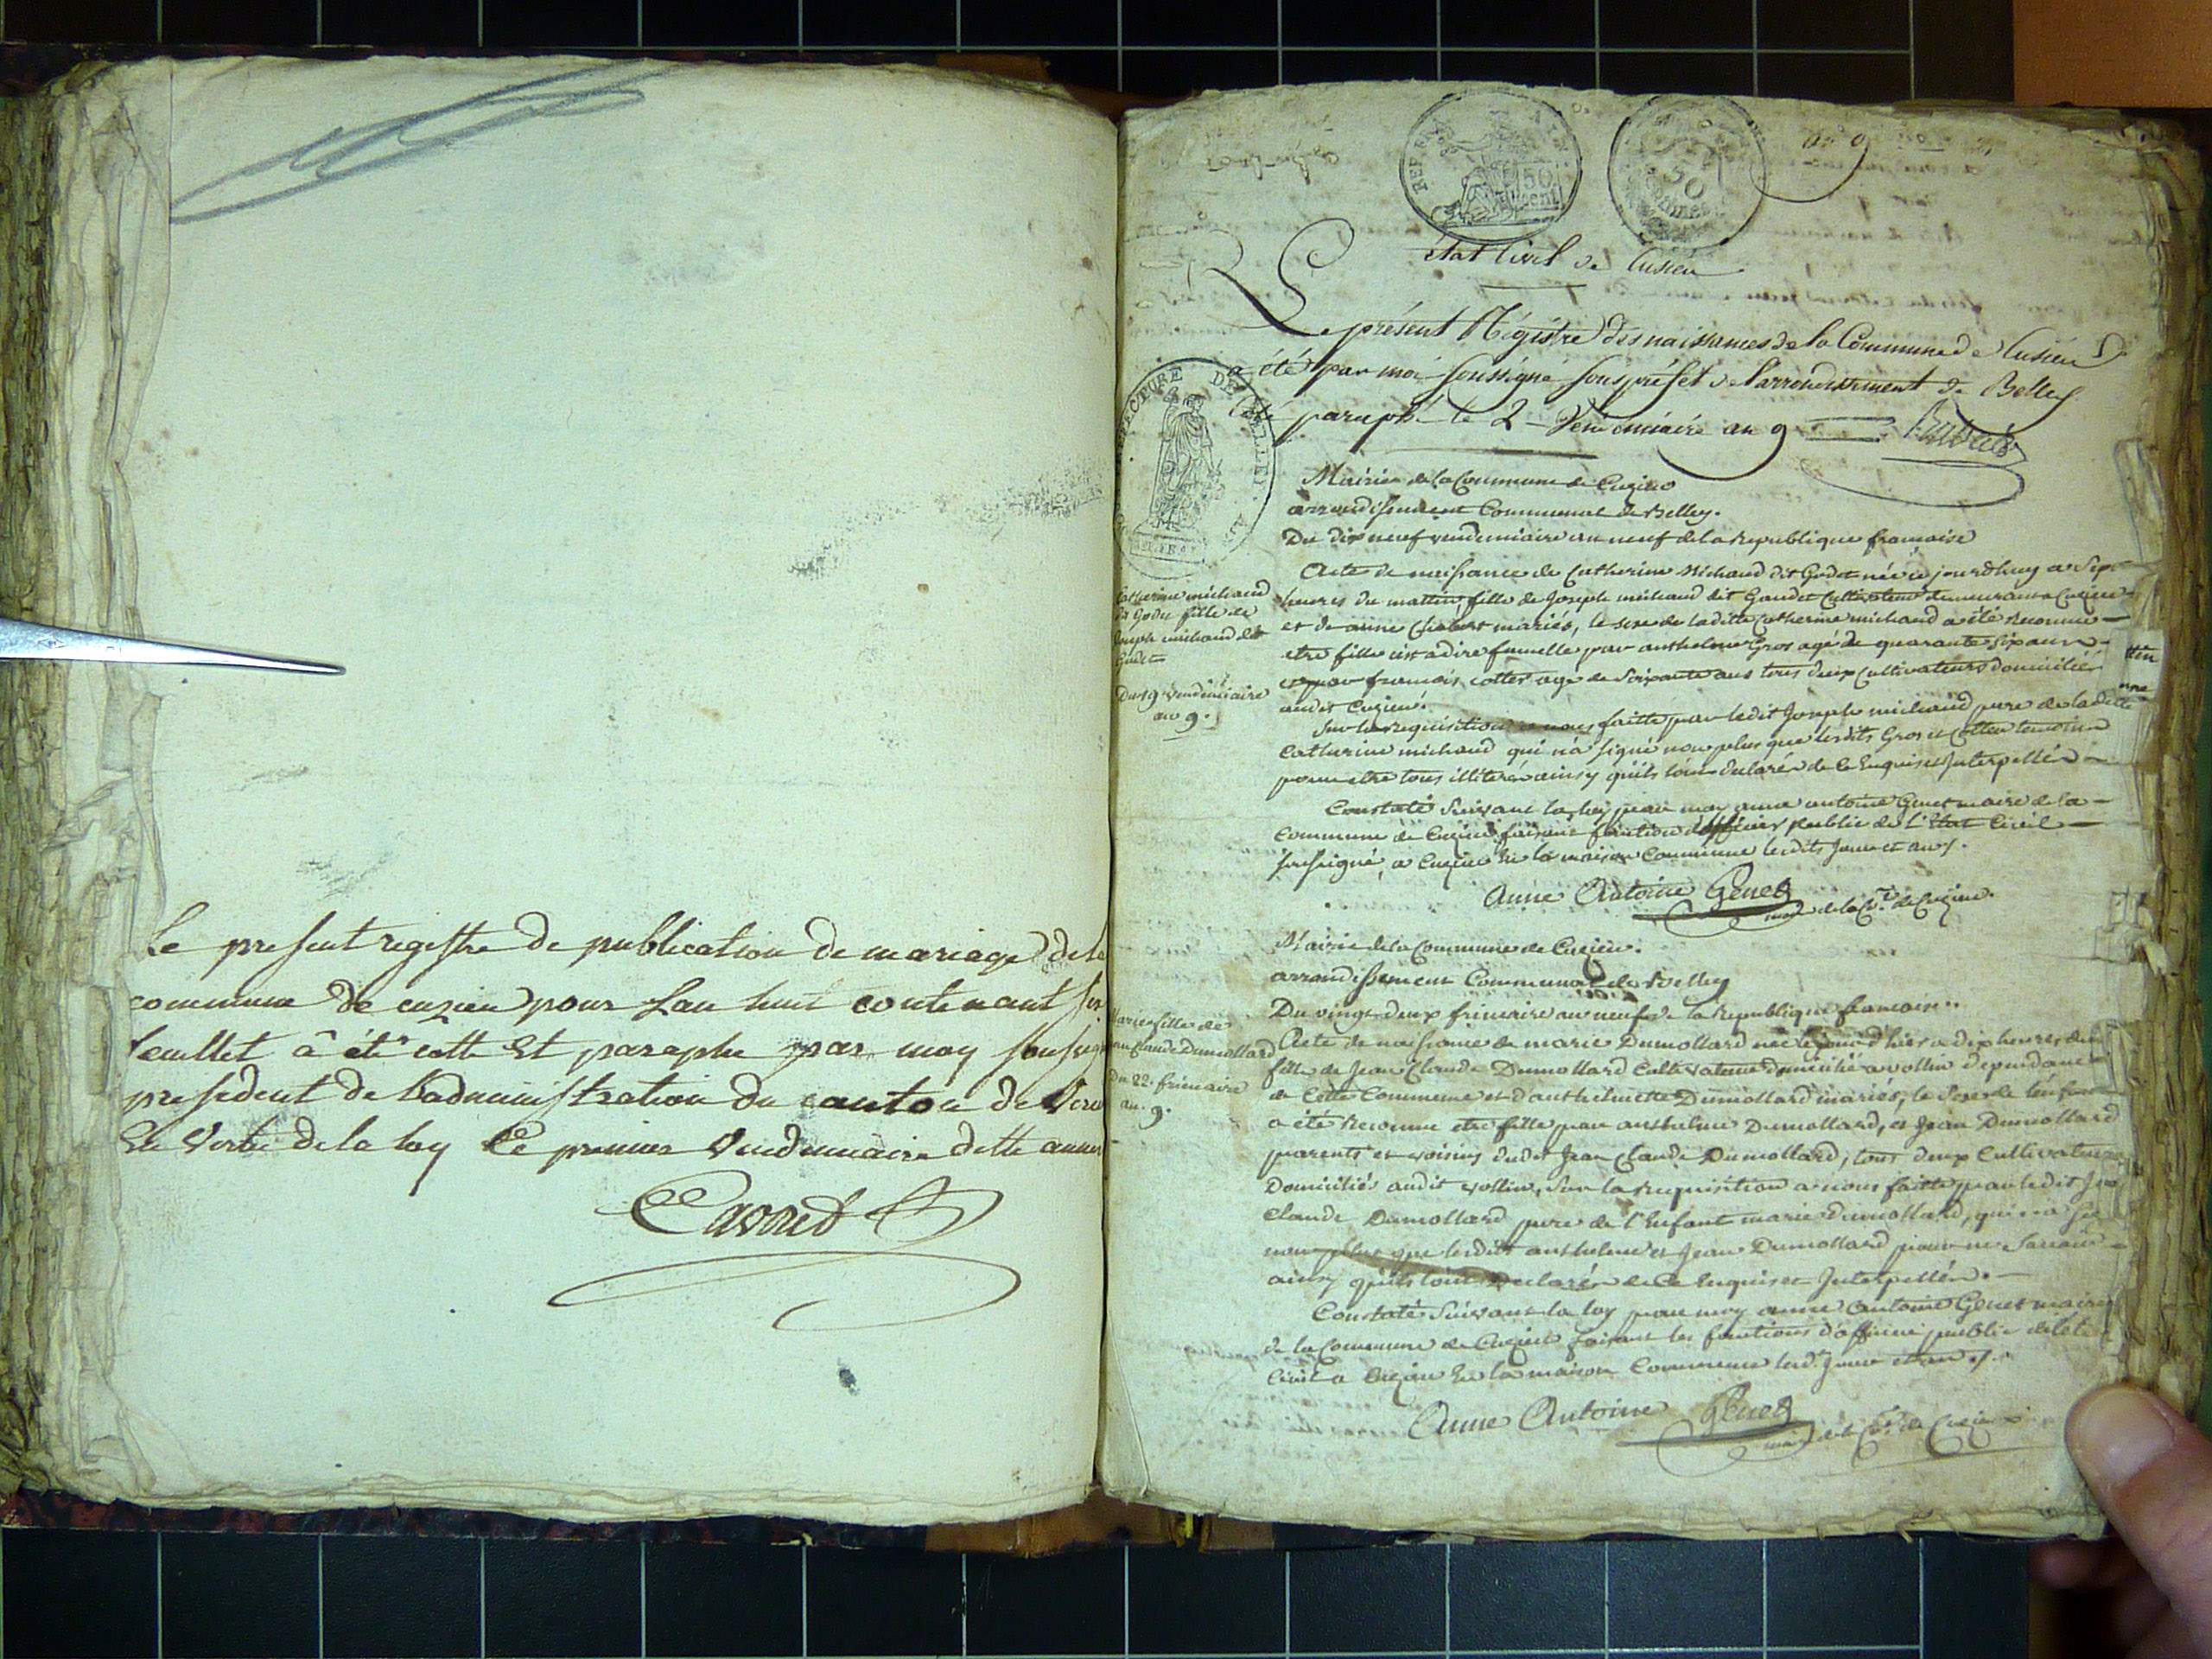 Le present registre de publication de mariage de la
commune de cuzieu pour Lan huit contenant six
feuillet à été cotté Et paraphe par moy soussigné
president de Ladministration du canton de Viri
En Vertu de la loy Le premier Vendemiaire dette année
an 9
REP. FRA
50
cent
30
état Civil de Cusieu
Le présent Régistre des naissances de la Commune de Cusieu
a été par moi soussigné sous préfet de l'arrondissement de Belley
paraphé le 2 Vendémiaire an 9
Mairie de la Commune de Cuzieu
arrondissement Communal de Belley.
Du dix neuf vendemiaire an neuf de la republique francaise
Catherine michaud
dit Godet fille de
Joseph michaud dit
Godet
Du 19 vendemiaire
an 9.
Acte de naissance de Catherine Michaud dit Godet née ce jourdhuy a sept
heures du mattin, fille de Joseph michaud dit Gaudet Cultivateur demeurant a Cuzieu
et de anne Chabert mariés, le sexe de laditte Catherine michaud a été reconnu
etre fille cest a dire femelle par anthelme Gros agé de quarante six ans
et par francois cotter age de soixante ans tous deux Cultivateurs domiciliés
audit Cuzieu.
Sur la requisition a nous faitte par ledit Joseph michaud pere de laditte
Catherine michaud qui n'a signé non plus que lesdits Gros et Cotter temoins
pour etre tous illiterés ainsy quils lont declarés de ce Enquis et Interpellés
Constaté suivant la loy par moy anne antoine Genet maire de la
commune de Cuzieu faisant fonction d'officier public de l'Etat Civil
soussigné, a Cuzieu En la maison Commune lesdits Jour et an.
Anne Antoine Genet
maire de la Cne de Cuzieu.
Mairie de la Commune de Cuzieu.
arrondissement Communal de Belley
Du vingt deux frimaire an neuf de la republique francaise.
Marie fille de
Jean Claude Dumollard
du 22. frimaire
an. 9.
Acte de naissance de marie Dumollard née le jour d'hier a dix heures du
fille de Jean Claude Dumollard Cultivateur domicilié a vollin dependance
de Cette Commune et d'anthelmette Dumollard mariés, le sexe de lenfant
a été reconnu etre fille par anthelme Dumollard, et Jean Dumollard
parents et voisins dudit Jean Claude Dumollard, tous deux Cultivateurs
Domiciliés audit vollin, Sur la requisition a nous faitte par ledit Jean
Claude Dumollard pere de l'Enfant marie Dumollard, qui n'a signé
non plus que lesdits anthelme et Jean Dumollard pour ne savoir
ainsy quils lont Declarés de Ce Enquis et Interpellés.
Constaté Suivant la loy par moy anne Antoine Genet maire
de la Commune de Cuzieu faisant les fonctions d'officier public de letat
Civil a Cuzieu En la maison Commune lesd. Jour et an.
Anne Antoine Genet
maire de la Cne de Cuzieu